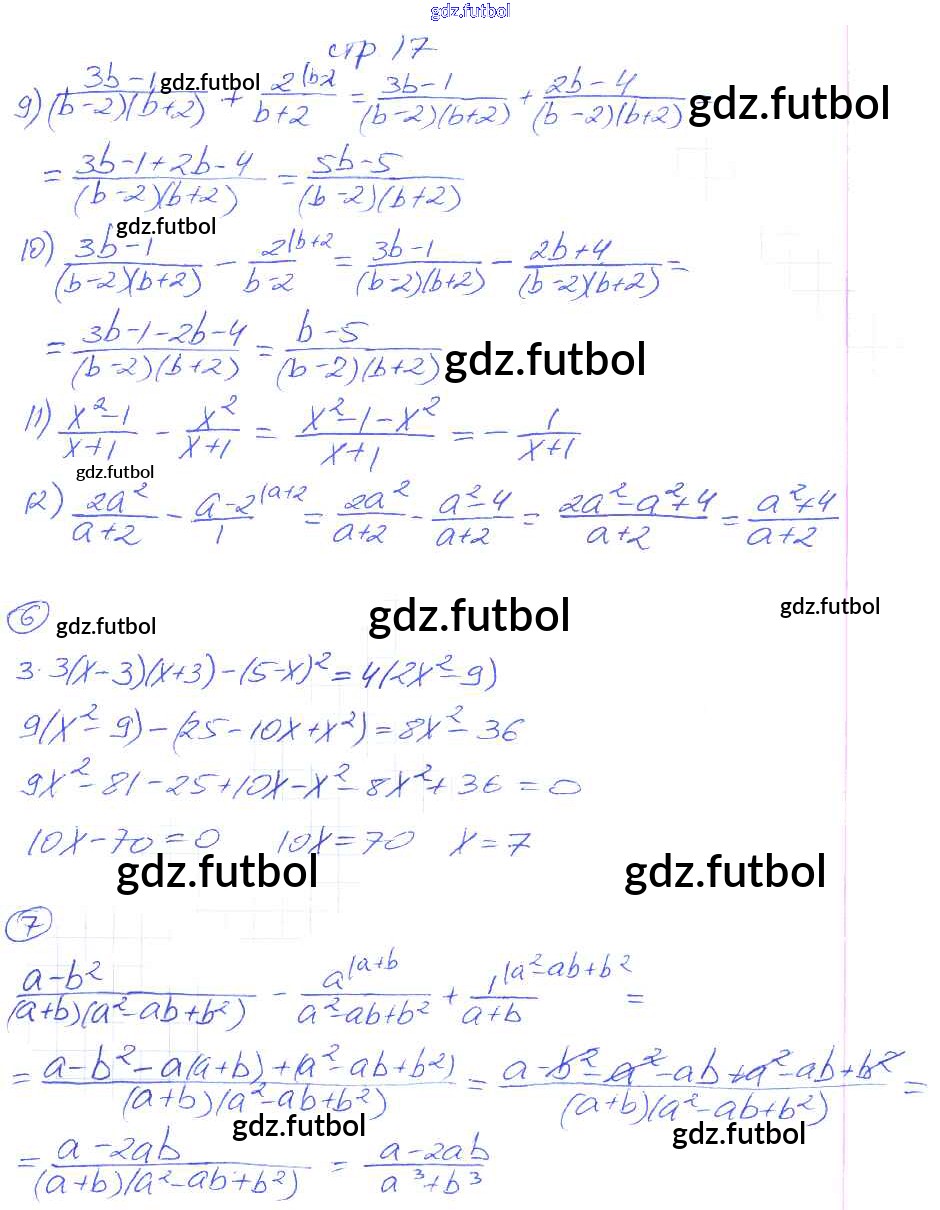 gdz.futbol
стр 17
9) (3b-1)/((b-2)(b+2)) + 2^(b-2/(b+2) = (3b-1)/((b-2)(b+2)) + (2b-4)/((b-2)(b+2)) =
gdz.futbol gdz.futbol
= (3b-1+2b-4)/((b-2)(b+2)) = (5b-5)/((b-2)(b+2))
gdz.futbol
10) (3b-1)/((b-2)(b+2)) - 2^(b+2/(b-2) = (3b-1)/((b-2)(b+2)) - (2b+4)/((b-2)(b+2)) =
= (3b-1-2b-4)/((b-2)(b+2)) = (b-5)/((b-2)(b+2))
gdz.futbol
11) (x²-1)/(x+1) - x²/(x+1) = (x²-1-x²)/(x+1) = - 1/(x+1)
gdz.futbol
12) 2a²/(a+2) - (a-2)^(a+2/1 = 2a²/(a+2) - (a²-4)/(a+2) = (2a²-a²+4)/(a+2) = (a²+4)/(a+2)
6 gdz.futbol gdz.futbol gdz.futbol
3·3(x-3)(x+3)-(5-x)²=4(2x²-9)
9(x²-9)-(25-10x+x²)=8x²-36
9x²-81-25+10x-x²-8x²+36=0
10x-70=0 10x=70 x=7
gdz.futbol gdz.futbol
7
(a-b²)/((a+b)(a²-ab+b²)) - a^(a+b/(a²-ab+b²) + 1^(a²-ab+b²/(a+b) =
= (a-b²-a(a+b)+(a²-ab+b²))/((a+b)(a²-ab+b²)) = (a-b²-a²-ab+a²-ab+b²)/((a+b)(a²-ab+b²)) =
gdz.futbol gdz.futbol
= (a-2ab)/((a+b)(a²-ab+b²)) = (a-2ab)/(a³+b³)